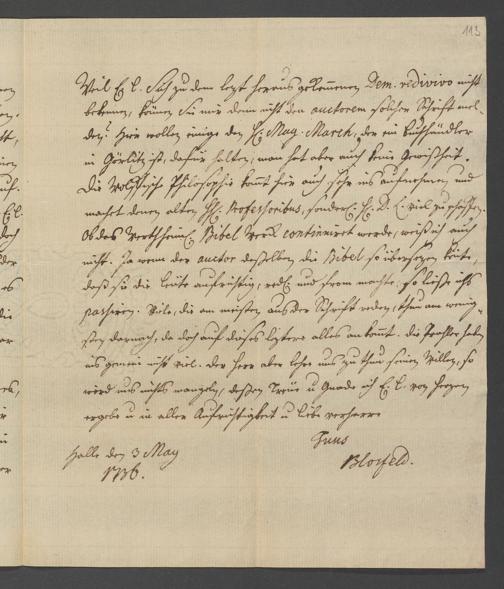 113
Weil E. L. Sich zu dem letzt heraus gekommenen Dem. redivivo nicht
bekennen, können Sie mir denn nicht den auctorem solcher Schrift mel-
den? Hier wollen einige den H. Mag. March, der ein Buchhändler
in Görlitz ist, dafür halten, man hat aber auch keine Gewißheit.
Die Wolffische Philosophie kommt hier auch sehr ins aufnehmen, und
machet denen alten Hh. Professoribus, sonderl. H. D. viel zu schaffen.
Ob das Wertheim. Bibel Werk continuiret werde, weiß ich auch
nicht. Ja wenn der auctor desselben die Bibel so übersetzen könte,
daß sie die Leute aufrichtig, redl. und from machte, so ließe ichs
passiren. Viele, die am meisten aus der Schrift reden, thun am wenig-
sten darnach, da doch auf dieses letztere alles ankommt. Die Prahler haben
ins gemein nicht viel. Der Herr aber lehre uns zu thun seinen Willen, so
wird uns nichts mangeln, deßen Treue u Gnade ich E. L. von Herzen
ergebe u in aller Aufrichtigkeit u Liebe verharre
Halle den 3 May
1736.
Tuus